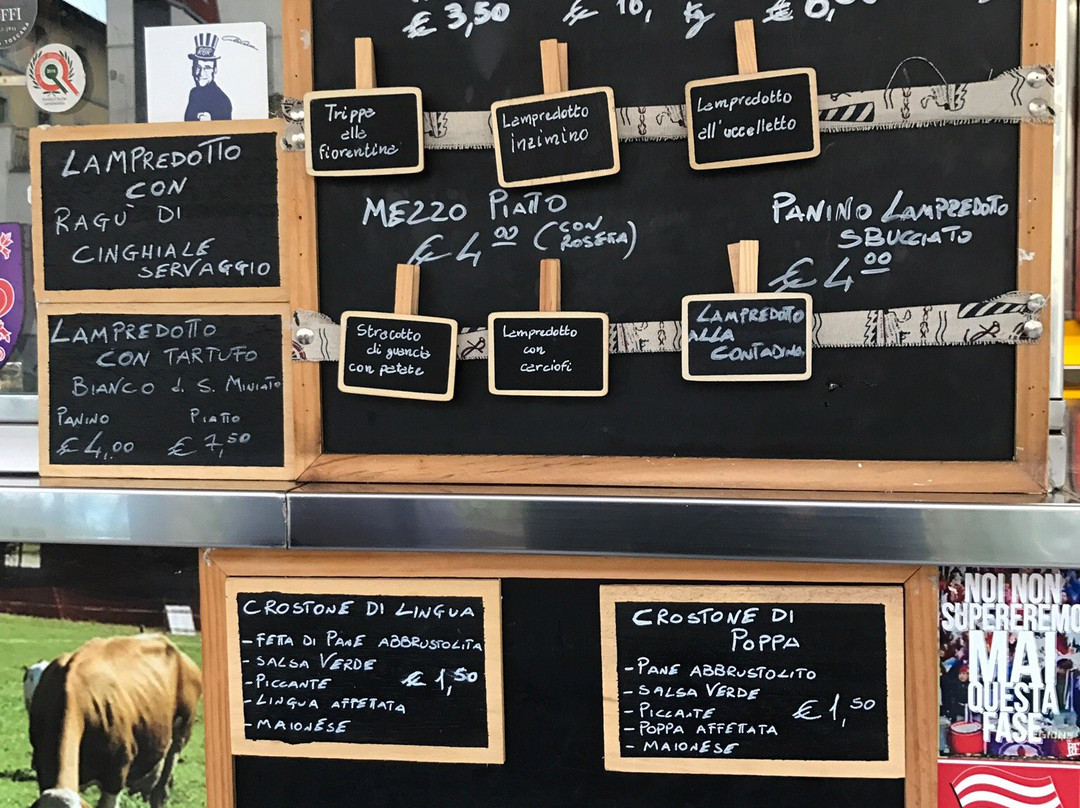 € 3,50
Trippa
alla
fiorentina
Lampredotto
inzimino
Lampredotto
all'uccelletto
LAMPREDOTTO
CON
RAGÙ DI
CINGHIALE
SERVAGGIO
MEZZO PIATTO
€ 4 00 (CON
ROSETTA)
PANINO LAMPREDOTTO
SBUCCIATO
€ 4 00
LAMPREDOTTO
CON TARTUFO
BIANCO d. S. MINIATO
PANINO PIATTO
€ 4,00 € 7,50
Stracotto
di guancia
con patate
Lampredotto
con
carciofi
LAMPREDOTTO
ALLA
CONTADINA
CROSTONE DI LINGUA
- FETTA DI PANE ABBRUSTOLITA
- SALSA VERDE
- PICCANTE € 1,50
- LINGUA AFFETTATA
- MAIONESE
CROSTONE DI
POPPA
- PANE ABBRUSTOLITO
- SALSA VERDE
- PICCANTE € 1,50
- POPPA AFFETTATA
- MAIONESE
NOI NON
SUPEREREMO
MAI
QUESTA
FASE